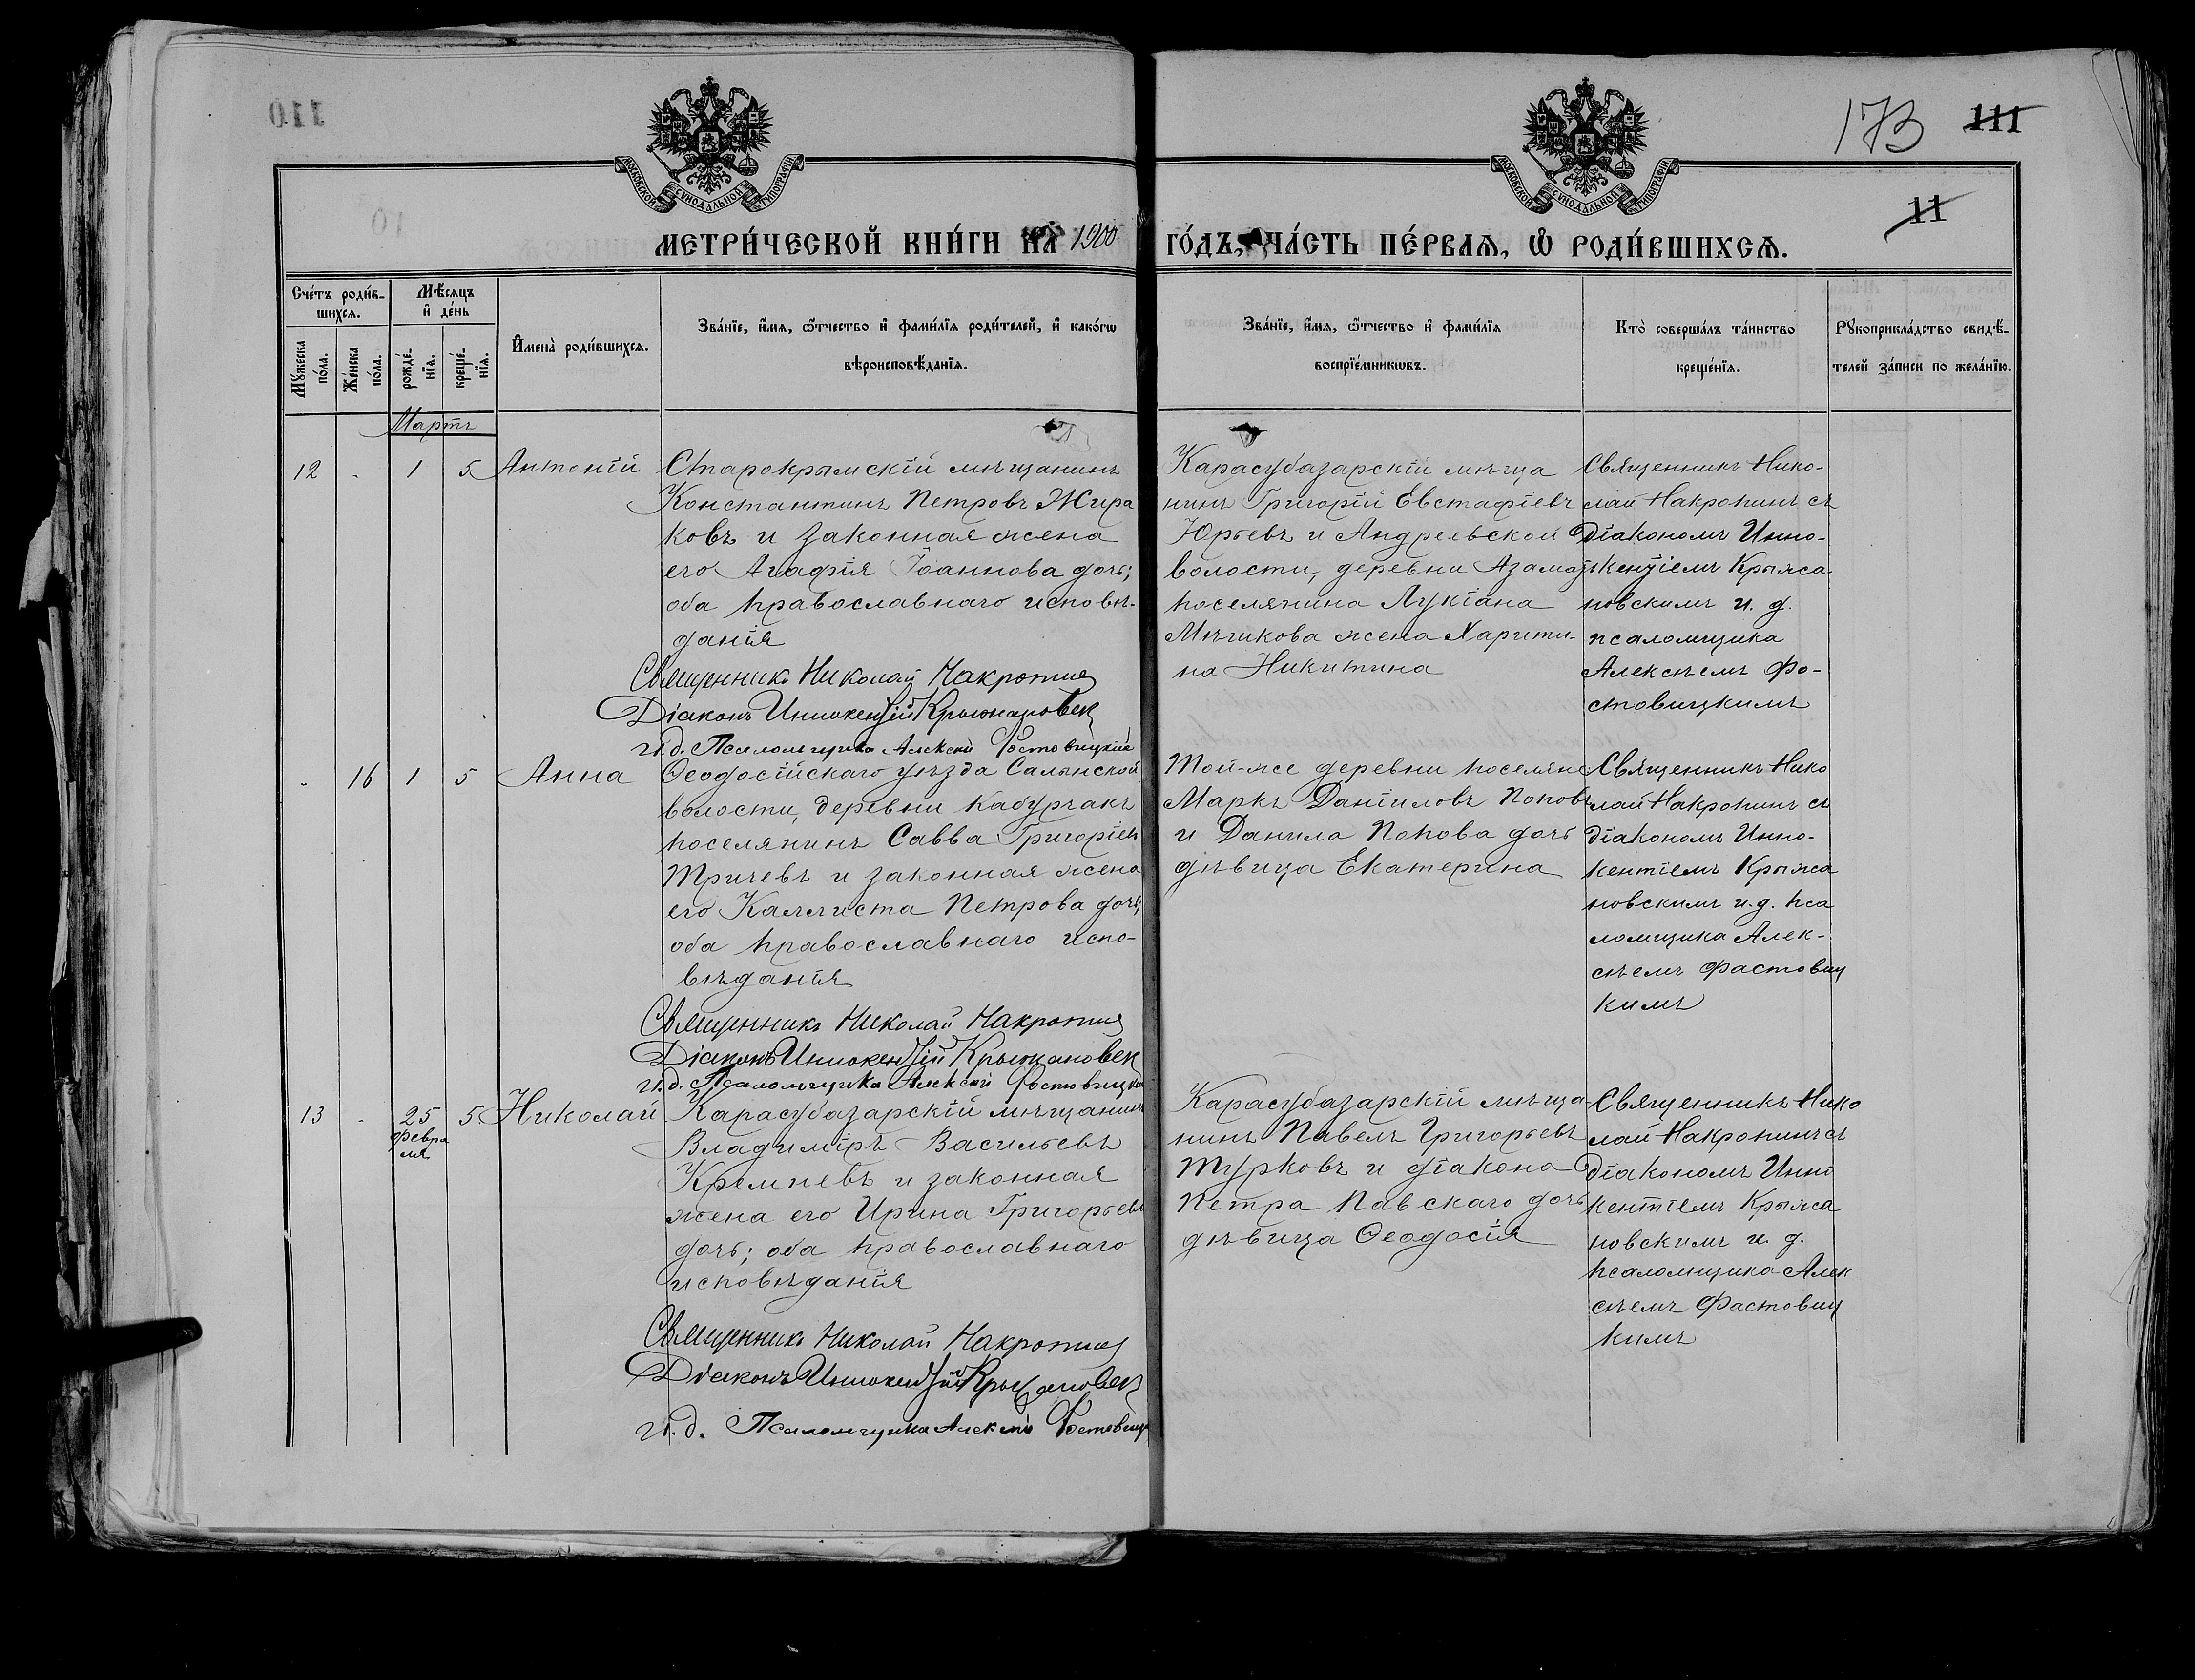 110
173 111
МОСКОВСКОЙ СѴНОДАЛЬНОЙ ТИПОГРАФІИ
МОСКОВСКОЙ СѴНОДАЛЬНОЙ ТИПОГРАФІИ
10
11
МЕТРИ́ЧЕСКОЙ КНИ́ГИ НА 1900 ГО́ДЪ, ЧА́СТЬ ПЕ́РВАѦ, Ѡ҆ РОДИ́ВШИХСѦ.
Сче́тъ роди́в-
шихсѧ.
Мѣ́сѧцъ
и҆ де́нь
Мꙋ́жеска
по́ла.
Же́нска
по́ла.
рожде́-
нїѧ.
креще́-
нїѧ.
И҆мена̀ роди́вшихсѧ.
Зва́нїе, и҆́мѧ, ѻ҆́тчество и҆ фами́лїѧ роди́телей, и҆ како́гѡ
вѣроисповѣ́данїѧ.
Зва́нїе, и҆́мѧ, ѻ҆́тчество и҆ фами́лїѧ
воспрїе́мникѡвъ.
Кто̀ соверша́лъ та́инство
креще́нїѧ.
Рꙋкоприкла́дство свидѣ́-
телей за́писи по жела́нїю.
Мартъ
12 - 1 5 Антоній
Старокрымскій мѣщанинъ
Константинъ Петровъ Жира
ковъ и законная жена
его Агафія Іоаннова дочь;
оба православнаго исповѣ-
данія
Священникъ Николай Накропин
Діаконъ Иннокентій Крыжановск
и.д. Псаломщика Алексѣй Фостовицкій
Карасубазарскій мѣща
нинъ Григорій Евстафіевъ
Юрьевъ и Андреевской
волости, деревни Азамат
поселянина Лукіана
Мѣчикова жена Харити-
на Никитина
Священникъ Нико-
лай Накропинъ съ
діакономъ Инно-
кентіемъ Крыжа-
новскимъ и. д.
псаломщика
Алексѣемъ Фо-
стовицкимъ
- 16 1 5 Анна
Ѳеодосійскаго уѣзда Салынской
волости, деревни Кабурчакъ
поселянинъ Савва Григоріевъ
Тричевъ и законная жена
его Каллиста Петрова дочь,
оба православнаго испо-
вѣданія
Священникъ Николай Накропин
Діаконъ Иннокентій Крыжановск
и.д. Псаломщика Алексѣй Фостовицкій
Той-же деревни поселяне
Маркъ Даніиловъ Поповъ
и Данила Попова дочь
дѣвица Екатерина
Священникъ Нико
лай Накропинъ съ
діакономъ Инно-
кентіемъ Крыжа
новскимъ и.д. пса
ломщика Алек-
сѣемъ Фастовиц
кимъ
13 - 25 5 Николай
Февра
ля
Карасубазарскій мѣщанинъ
Владиміръ Васильевъ
Кремневъ и законная
жена его Ирина Григорьева
дочь; оба православнаго
исповѣданія
Священникъ Николай Накропин
Діаконъ Иннокентій Крыжановск
и.д. Псаломщика Алексѣй Фостовицк
Карасубазарскій мѣща-
нинъ Павелъ Григорьевъ
Турковъ и діакона
Петра Павскаго дочь
дѣвица Ѳеодосія
Священникъ Нико
лай Накропинъ съ
діакономъ Инно
кентіемъ Крыжа
новскимъ и. д.
псаломщика Алек
сѣемъ Фастовиц
кимъ